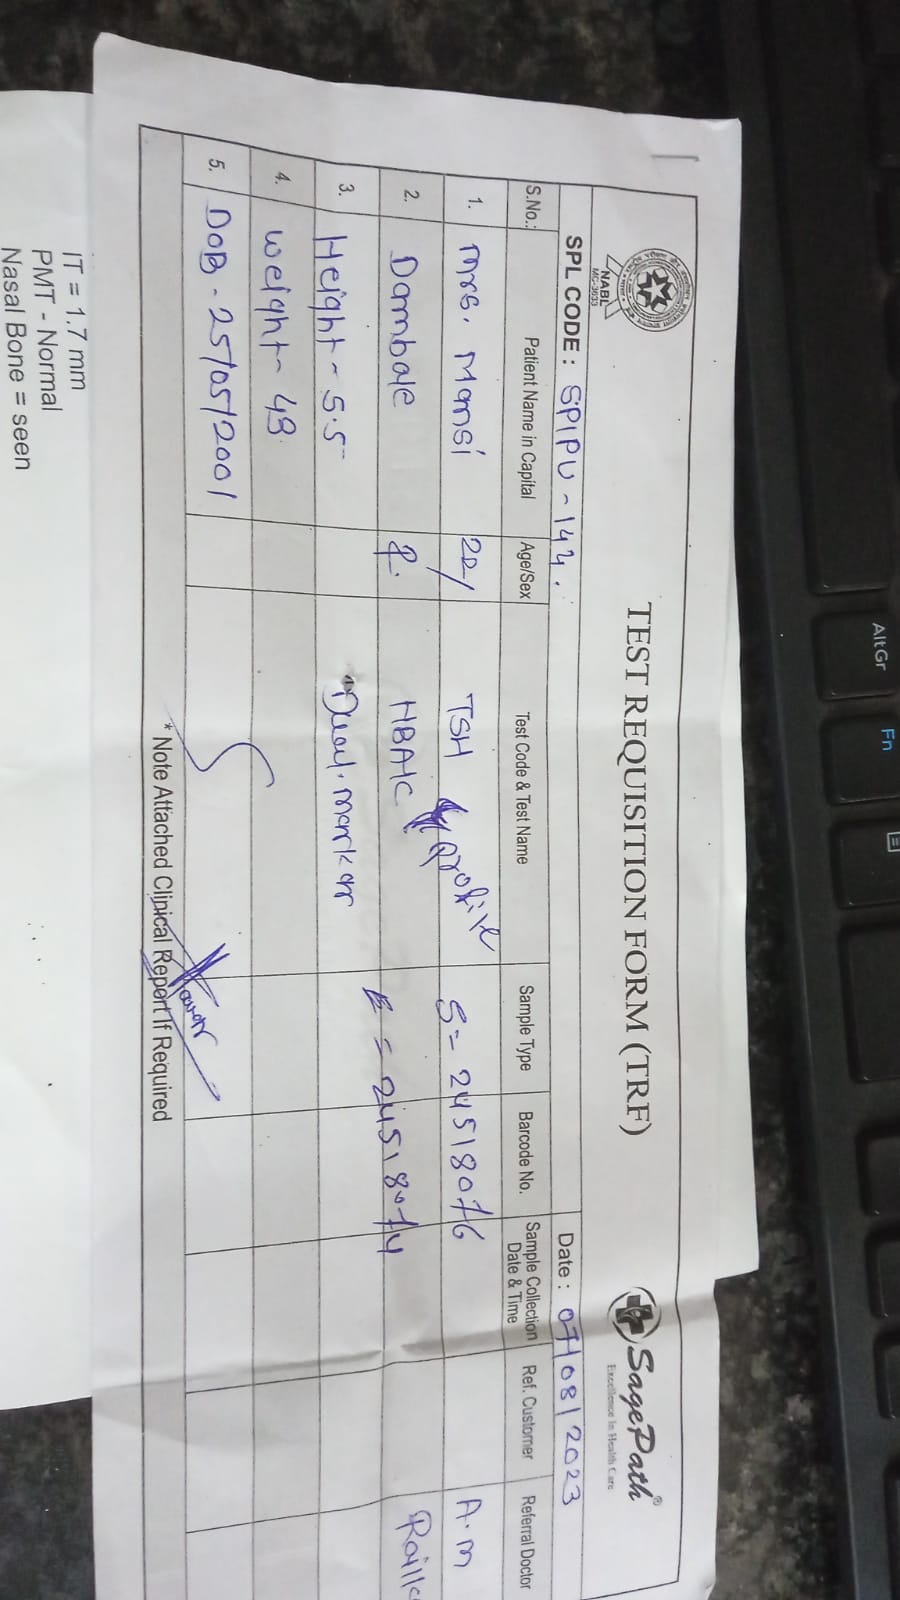 NABL
MC-3633
TEST REQUISITION FORM (TRF)
SagePath®
Excellence In Health Care
SPL CODE : SPIPU - 142 . Date : 07/08/2023
S.No.: Patient Name in Capital Age/Sex Test Code & Test Name Sample Type Barcode No. Sample Collection Date & Time Ref. Customer Referral Doctor
1. Mrs. Mansi 22/ TSH profile S = 24518076 A.M
2. Dambale HBA1C E = 24518074
3. Height - 5.5 Dual.marker
4. weight - 48
5. DOB - 25/05/2001
* Note Attached Clinical Report If Required
IT = 1.7 mm
PMT - Normal
Nasal Bone = seen
AltGr
Fn